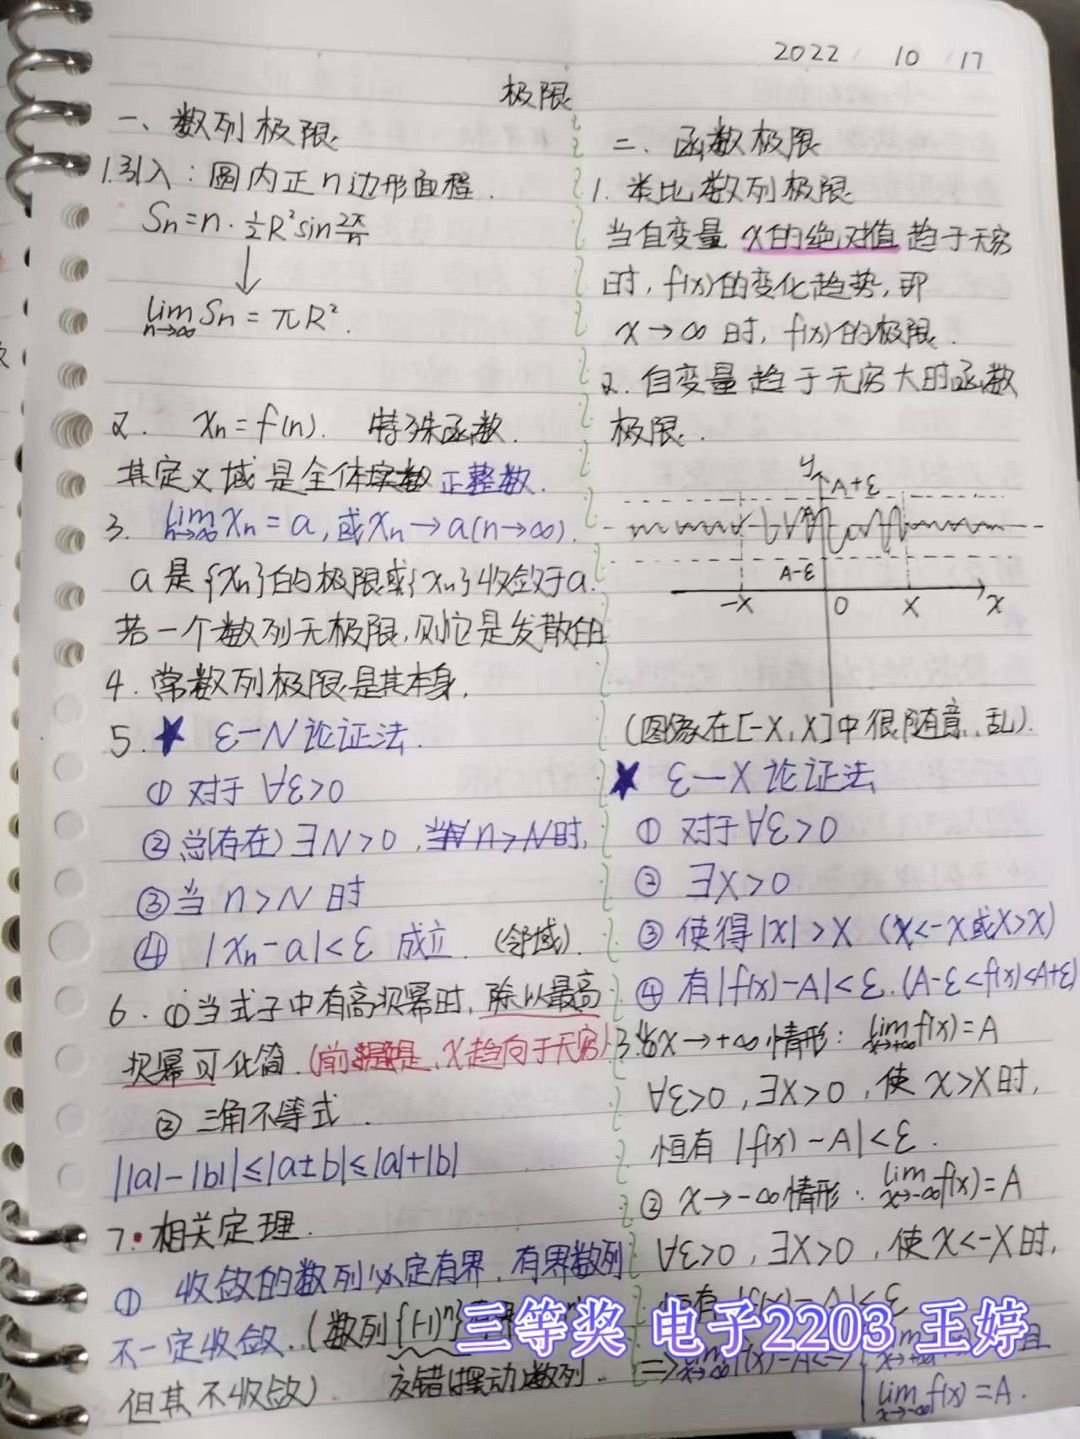 2022 10 17
极限
一、数列极限
1.引入：圆内正n边形面积.
Sn=n·½R²sin2π/n
↓
lim Sn=πR².
n→∞
2. xn=f(n). 特殊函数.
其定义域是全体正整数.
3. lim xn=a,或xn→a(n→∞).
n→∞
a是{xn}的极限或{xn}收敛于a.
若一个数列无极限,则它是发散的
4.常数列极限是其本身.
5.★ ε-N论证法.
① 对于∀ε>0
② 总(存在)∃N>0,当n>N时,
③当n>N时
④ |xn-a|<ε 成立 (邻域).
6.①当式子中有高次幂时,除以最高
次幂可化简.(前提是,X趋向于无穷)
② 三角不等式.
||a|-|b||≤|a±b|≤|a|+|b|
7.相关定理.
① 收敛的数列必定有界,有界数列
不一定收敛.(数列{(-1)ⁿ}
但其不收敛). 交错(摆动)数列.
二、函数极限
1.类比数列极限
当自变量x的绝对值趋于无穷
时,f(x)的变化趋势,即
x→∞时,f(x)的极限.
2.自变量趋于无穷大时函数
极限.
y
A+ε
A-ε
-X 0 X x
(图像在[-X,X]中很随意、乱).
★ ε-X论证法
① 对于∀ε>0
② ∃X>0
③ 使得|x|>X (x<-X或X>x)
④ 有|f(x)-A|<ε.(A-ε<f(x)<A+ε)
3.①x→+∞情形：lim f(x)=A
x→+∞
∀ε>0,∃X>0,使x>X时,
恒有|f(x)-A|<ε.
② x→-∞情形：lim f(x)=A
x→-∞
∀ε>0,∃X>0,使x<-X时,
恒有|f(x)-A|<ε
三等奖 电子2203 王婷
且
lim f(x)=A.
x→-∞